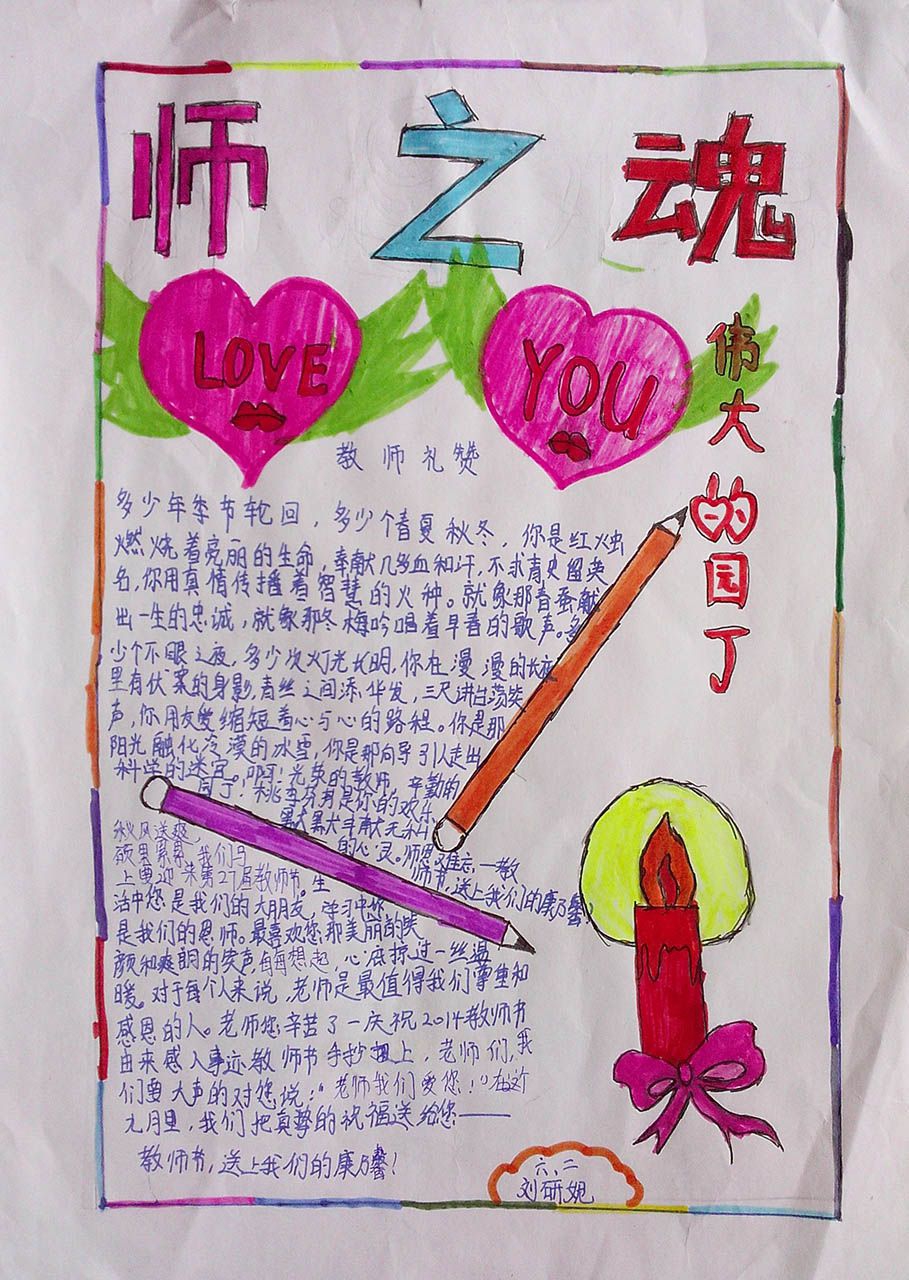 师之魂
LOVE
YOU
伟大的园丁
教师礼赞
多少年季节轮回，多少个春夏秋冬，你是红烛
燃烧着亮丽的生命，奉献几多血和汗，不求青史留英
名，你用真情传播着智慧的火种。就象那春蚕献
出一生的忠诚，就象那冬梅吟唱着早春的歌声。多
少个不眠之夜，多少次灯光长明，你在漫漫的长夜
里有伏案的身影，青丝之间添华发，三尺讲台荡笑
声，你用友爱缩短着心与心的路程。你是那
阳光融化冷漠的冰雪，你是那向导引人走出
科学的迷宫。啊！光荣的教师，辛勤的
园丁！桃李芬芳是你的欢乐
默默奉献无私
的心灵。师恩难忘，一教
秋风送爽，
硕果累累，我们与
师节，送上我们的康乃馨
上奥迎来第27届教师节。生
活中您是我们的大朋友，学习中您
是我们的恩师。最喜欢您那美丽的笑
颜和爽朗的笑声，每每想起，心底掠过一丝温
暖。对于每个人来说，老师是最值得我们尊重和
感恩的人。老师您辛苦了一庆祝2014教师节
由来感人事迹教师节手抄报上，老师们，我
们要大声的对您说："老师我们爱您！"在这个
九月里，我们把真挚的祝福送给您——
教师节，送上我们的康乃馨！
六、二
刘研妮